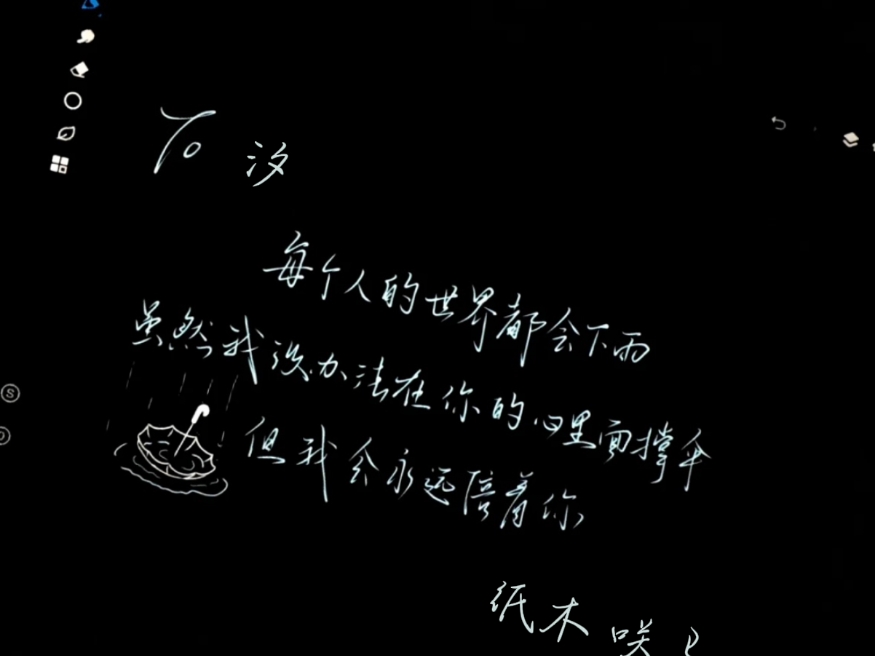 To 汐
每个人的世界都会下雨
虽然我没办法在你的心里面撑伞
但我会永远陪着你
纸木